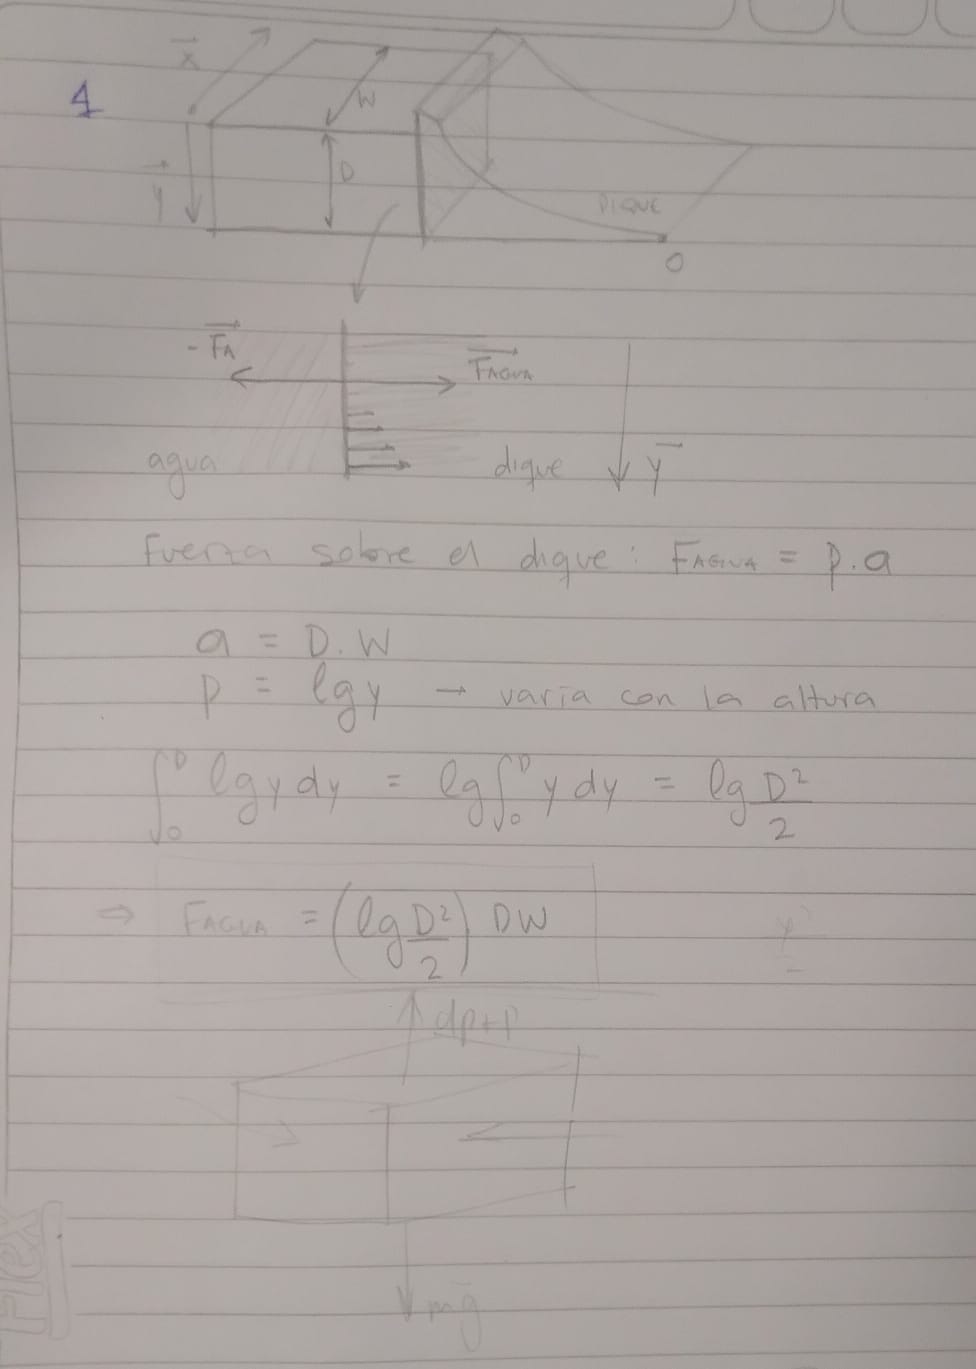 1
x
W
D
y
DIQUE
O
- FA
FAGUA
agua
dique
y
Fuerza sobre el dique: FAGUA = p.a
a = D.W
p = ρgy → varia con la altura
∫₀ᴰ ρgy dy = ρg∫₀ᴰ y dy = ρg D²/2
⇒ FAGUA = (ρg D²/2) DW
dp+p
mg
Flex